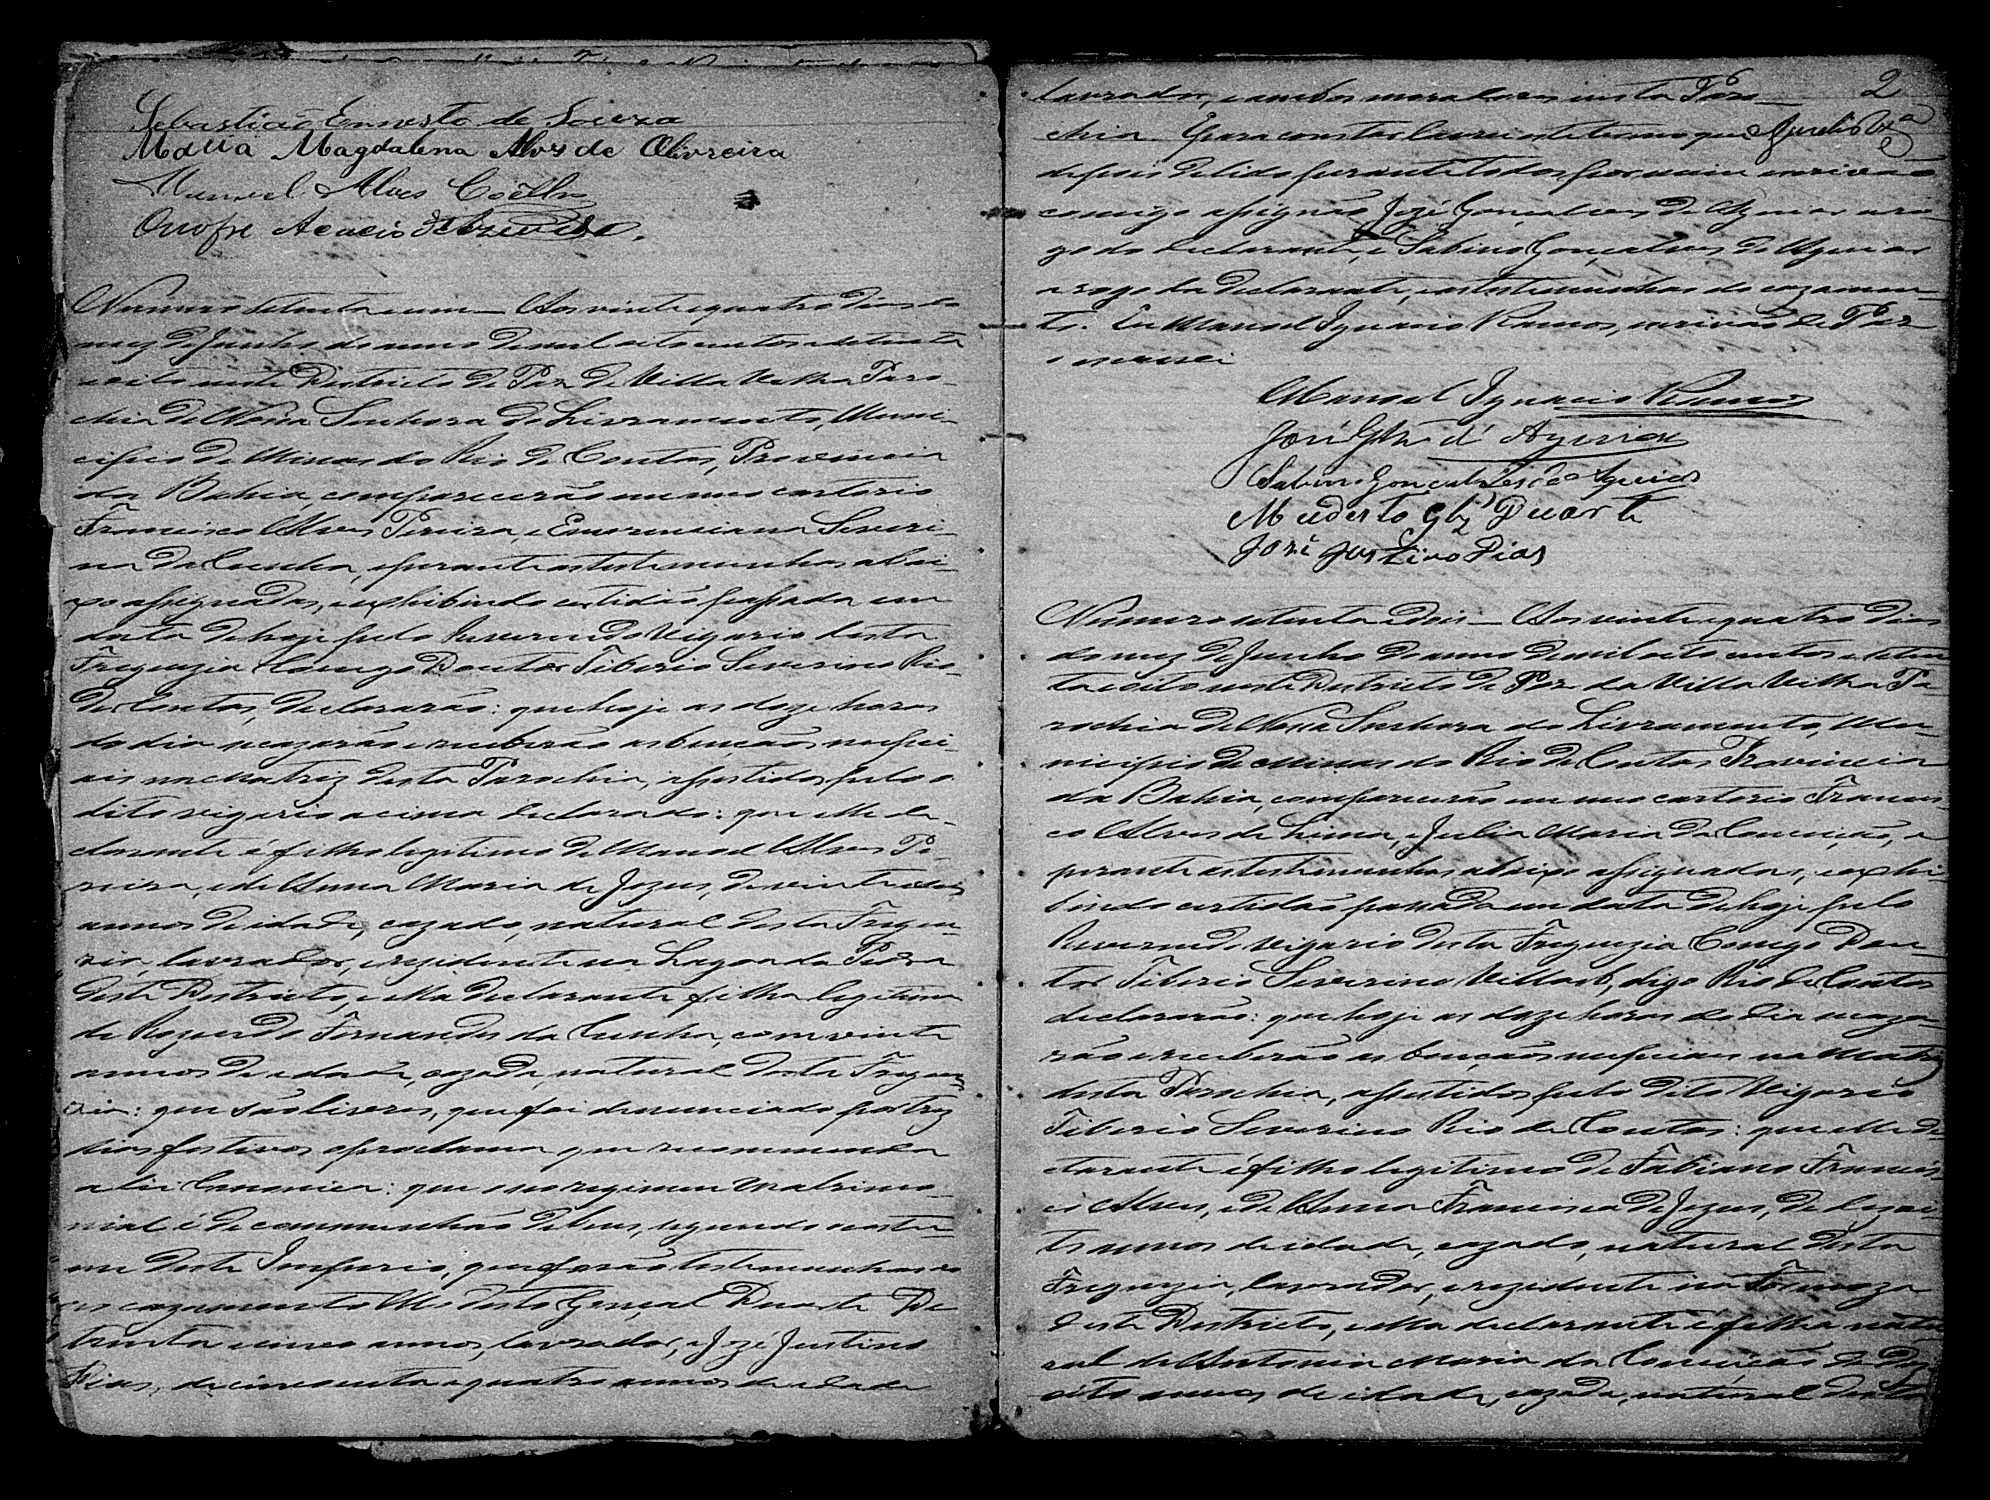 Sebastião Ernesto de Souza
Maria Magdalena Alves de Oliveira
Manoel Alves Coêlho
Onofre Acacio de
Numero setenta e um — Aos vinte quatro dias do
mez de Junho do anno de mil oito centos e setenta
e oito neste Districto de Paz de Villa Velha Paro-
chia de Nossa Senhora do Livramento, Muni-
cipio de Minas do Rio de Contas, Provincia
da Bahia, comparecerão em meo cartorio
Francisco Alves Pereira, e Emerenciana Severi-
na da Cunha, e perante as testemunhas abai-
xo assignadas, exhibindo certidão passada em
data de hoje pelo Reverendo Vigario desta
Freguezia Conego Doutor Tiberio Severino Rio
de Contas, declararão: que hoje as doze horas
do dia se cazarão e receberão as bençãos nupci-
aes na Matriz desta Parochia, assistidos pelo o
dito vigario acima declarado: que elle de-
clarante é filho legitimo de Manoel Alves Pe-
reira, e de Anna Maria de Jezus, de vinte e dois
annos de idade, cazado, natural desta Fregue-
zia, lavrador, e rezidente na Lagoa da Pedra
deste Districto, e ella declarante filha legitima
de Fernandes da Cunha, com vinte
annos de idade, cazada, natural desta Fregue-
zia: que são livres, que foi denunciado por trez
dias festivos o proclama que recommenda
a lei Canonica: que o seo regimen matrimo-
nial é de communhão de bens, segundo costu-
me deste Imperio, que forão testemunhas ao
cazamento Modesto Gonçal Duarte de
trinta e cinco annos, lavrador, e Jozé Justino
Dias, de cincoenta e quatro annos de idade
2
lavrador, e ambos moradores nesta Paro-
chia. E para constar lavrei este termo que
depois de lido perante todos por mim escrivão
comigo assignão Jozé Gonçalves de Aguiar a ro-
go do declarante, e Sabino Gonçalves de Aguiar
a rogo da declarante, e as testemunhas do cazamen-
to. Eu Manoel Ignacio Ramos, escrivão de Paz
o escrevi
Manoel Ignacio Ramos
José Glz d' Aguiar
Sabino Gonçalves de Aguiar
Muderto Glz Duarte
José Justino Dias
Numero setenta e dois — Aos vinte quatro dias
do mez de Junho do anno de mil oito centos e seten-
ta e oito neste Districto de Paz da Villa Velha Pa-
rochia de Nossa Senhora do Livramento, Mu-
nicipio de Minas do Rio de Contas Provincia
da Bahia, comparecerão em meo cartorio Francis-
co Alves de Lima, e Julia Maria da Conceição, e
perante as testemunhas abaixo assignadas, exhi-
bindo certidão passada em data de hoje pelo
Reverendo Vigario desta Freguezia Conego Dou-
tor Tiberio Severino digo Rio de Contas
declararão: que hoje as doze horas do dia se caza-
rão e receberão as bençãos nupciaes na Matriz
desta Parochia, assistidos pelo dito Vigario
Tiberio Severino Rio de Contas: que elle de
clarante é filho legitimo de Fabiano Francis-
co Alves, e de Anna Francisca de Jezus, de dezoi-
to annos de idade, cazado, natural desta
Freguezia, lavrador, e rezidente na
deste Districto, e ella declarante é filha natu
ral de Antonia Maria da Conceição de
oito annos de idade, cazada, natural desta